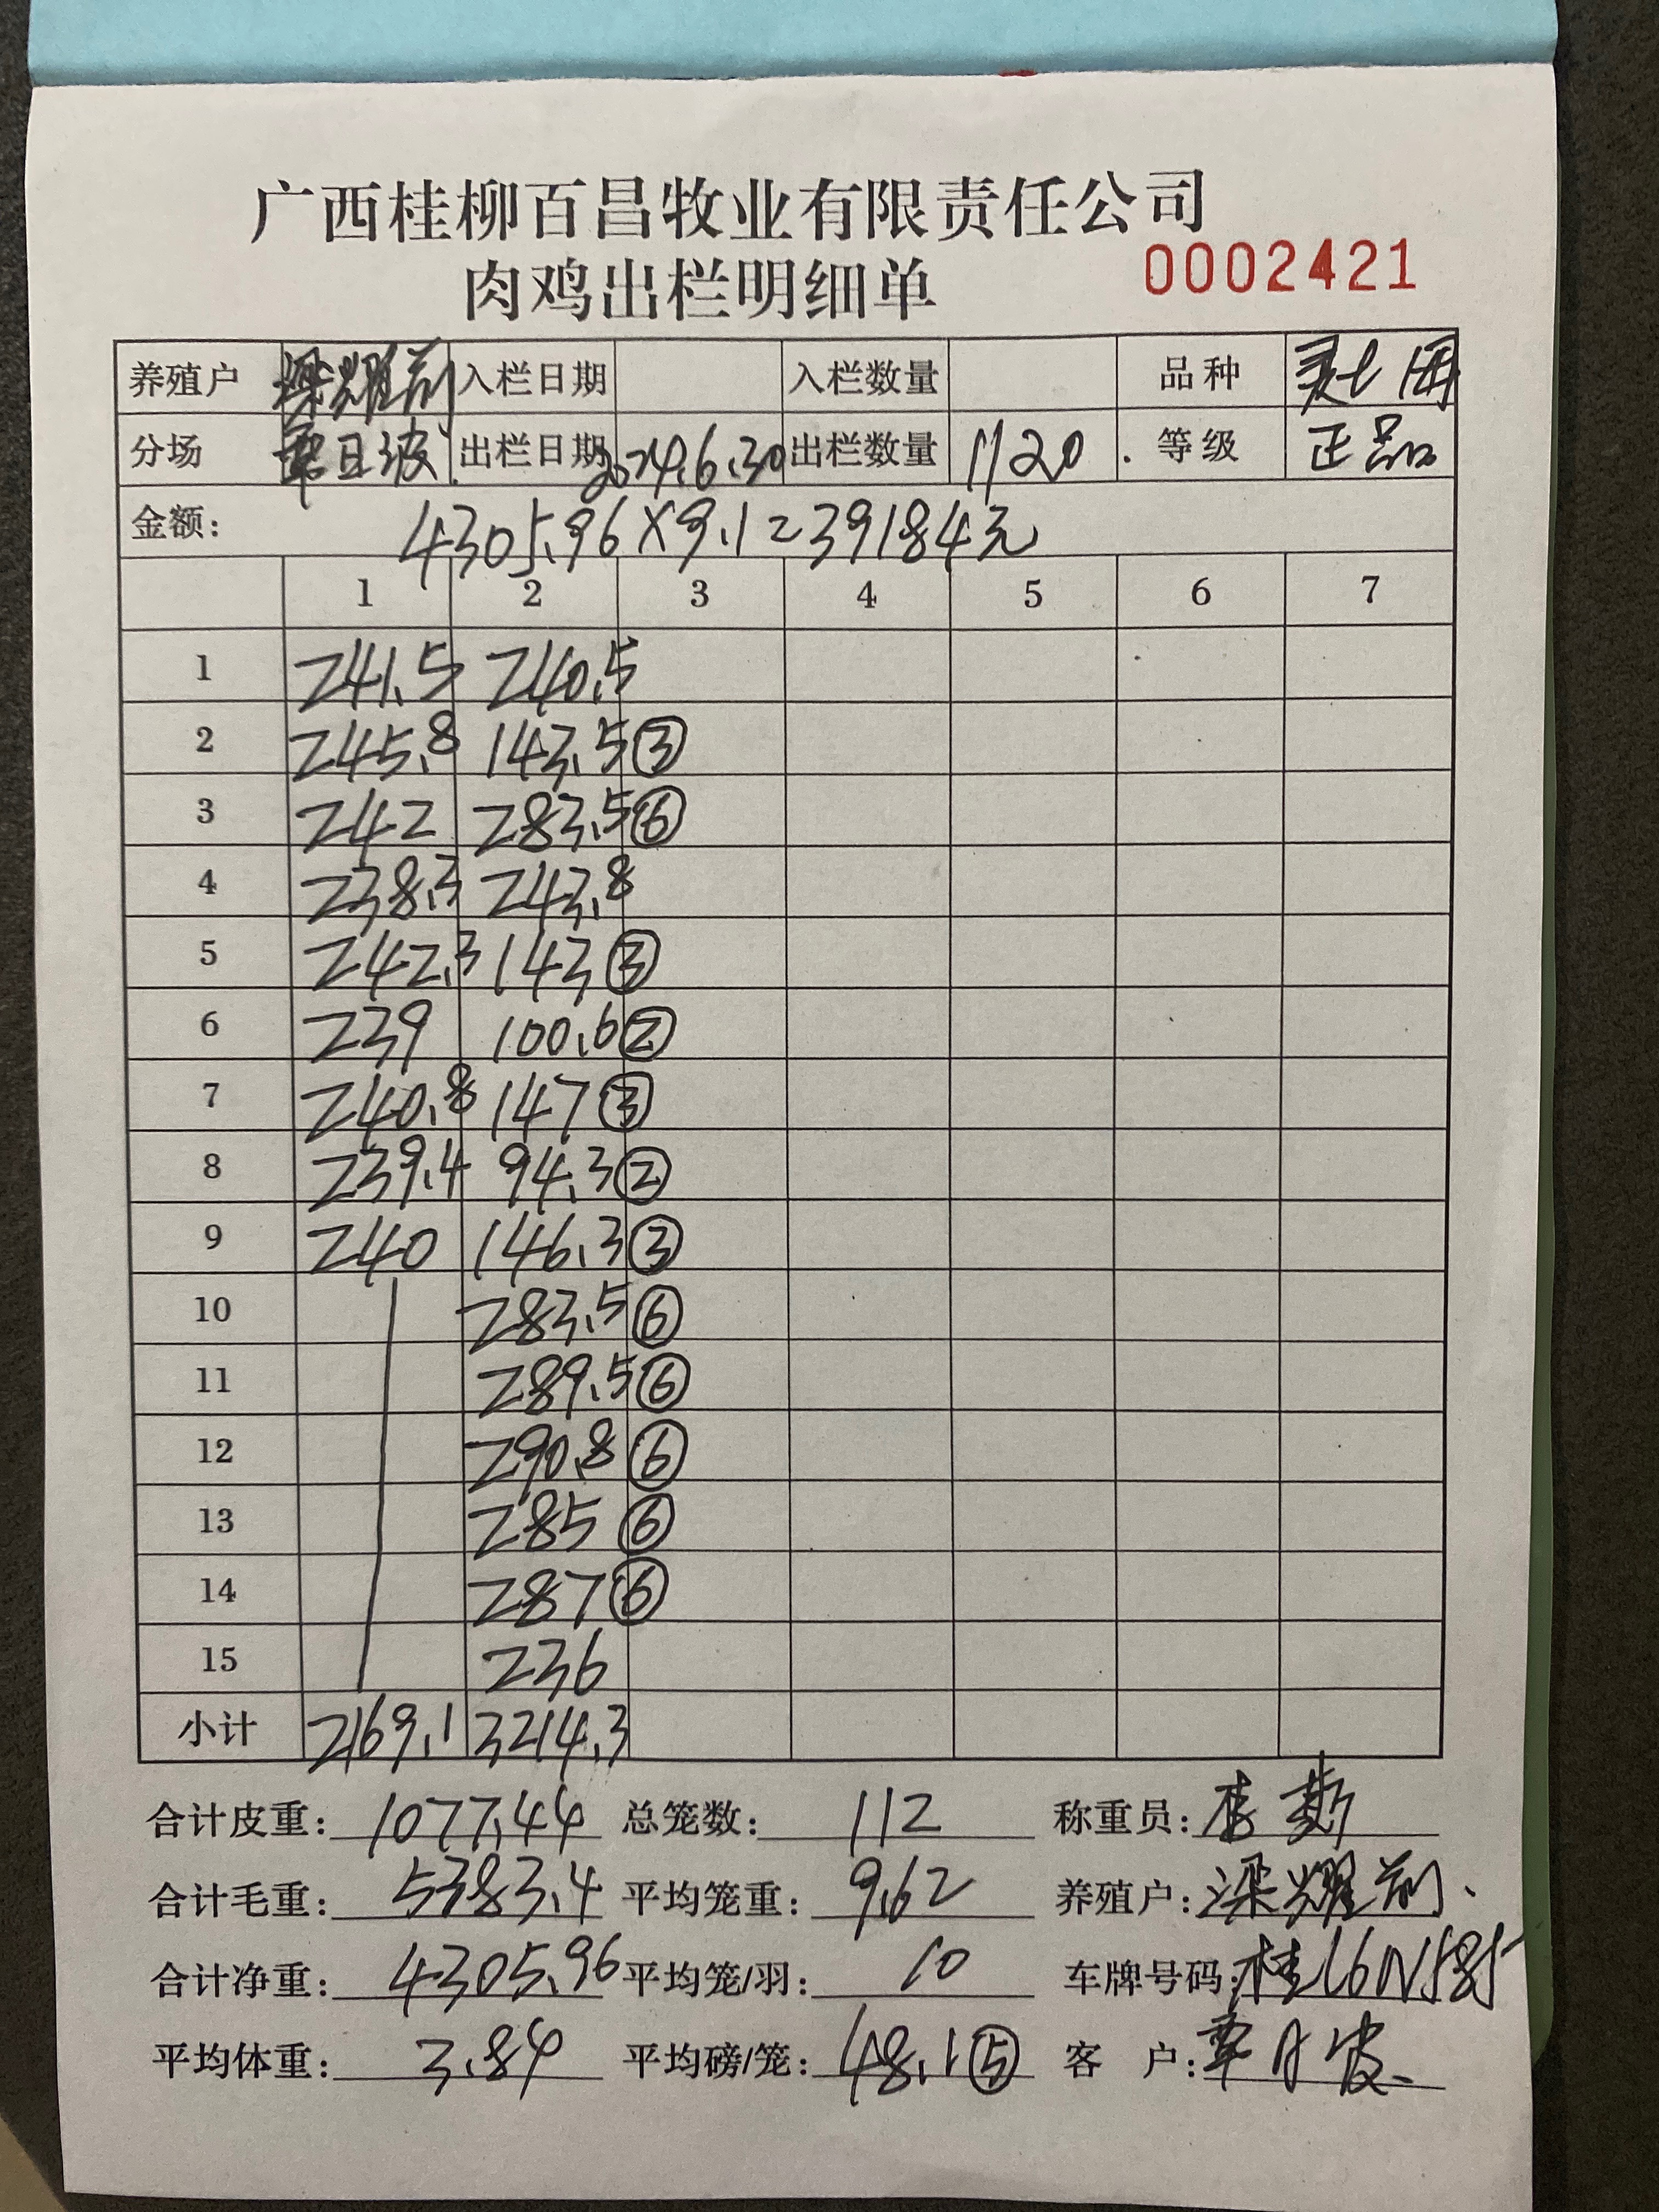 广西桂柳百昌牧业有限责任公司
肉鸡出栏明细单 0002421
养殖户 梁耀 入栏日期 入栏数量 品种
分场 日波 出栏日期 2024.6.30 出栏数量 1120 . 等级 正品
金额: 4305.96×9.1=39184元
1 2 3 4 5 6 7
1 241.5 240.5
2 245.8 143.5 ③
3 242 283.5 ⑥
4 238.3 243.8
5 242.3 143 ③
6 239 100.6 ②
7 240.8 147 ③
8 239.4 94.3 ②
9 240 146.3 ③
10 283.5 ⑥
11 289.5 ⑥
12 290.8 ⑥
13 285 ⑥
14 287 ⑥
15 236
小计 2169.1 3214.3
合计皮重: 1077.44 总笼数: 112 称重员: 李
合计毛重: 5383.4 平均笼重: 9.62 养殖户: 梁耀
合计净重: 4305.96 平均笼/羽: 10 车牌号码: 桂
平均体重: 3.84 平均磅/笼: 48.1 ⑤ 客 户: